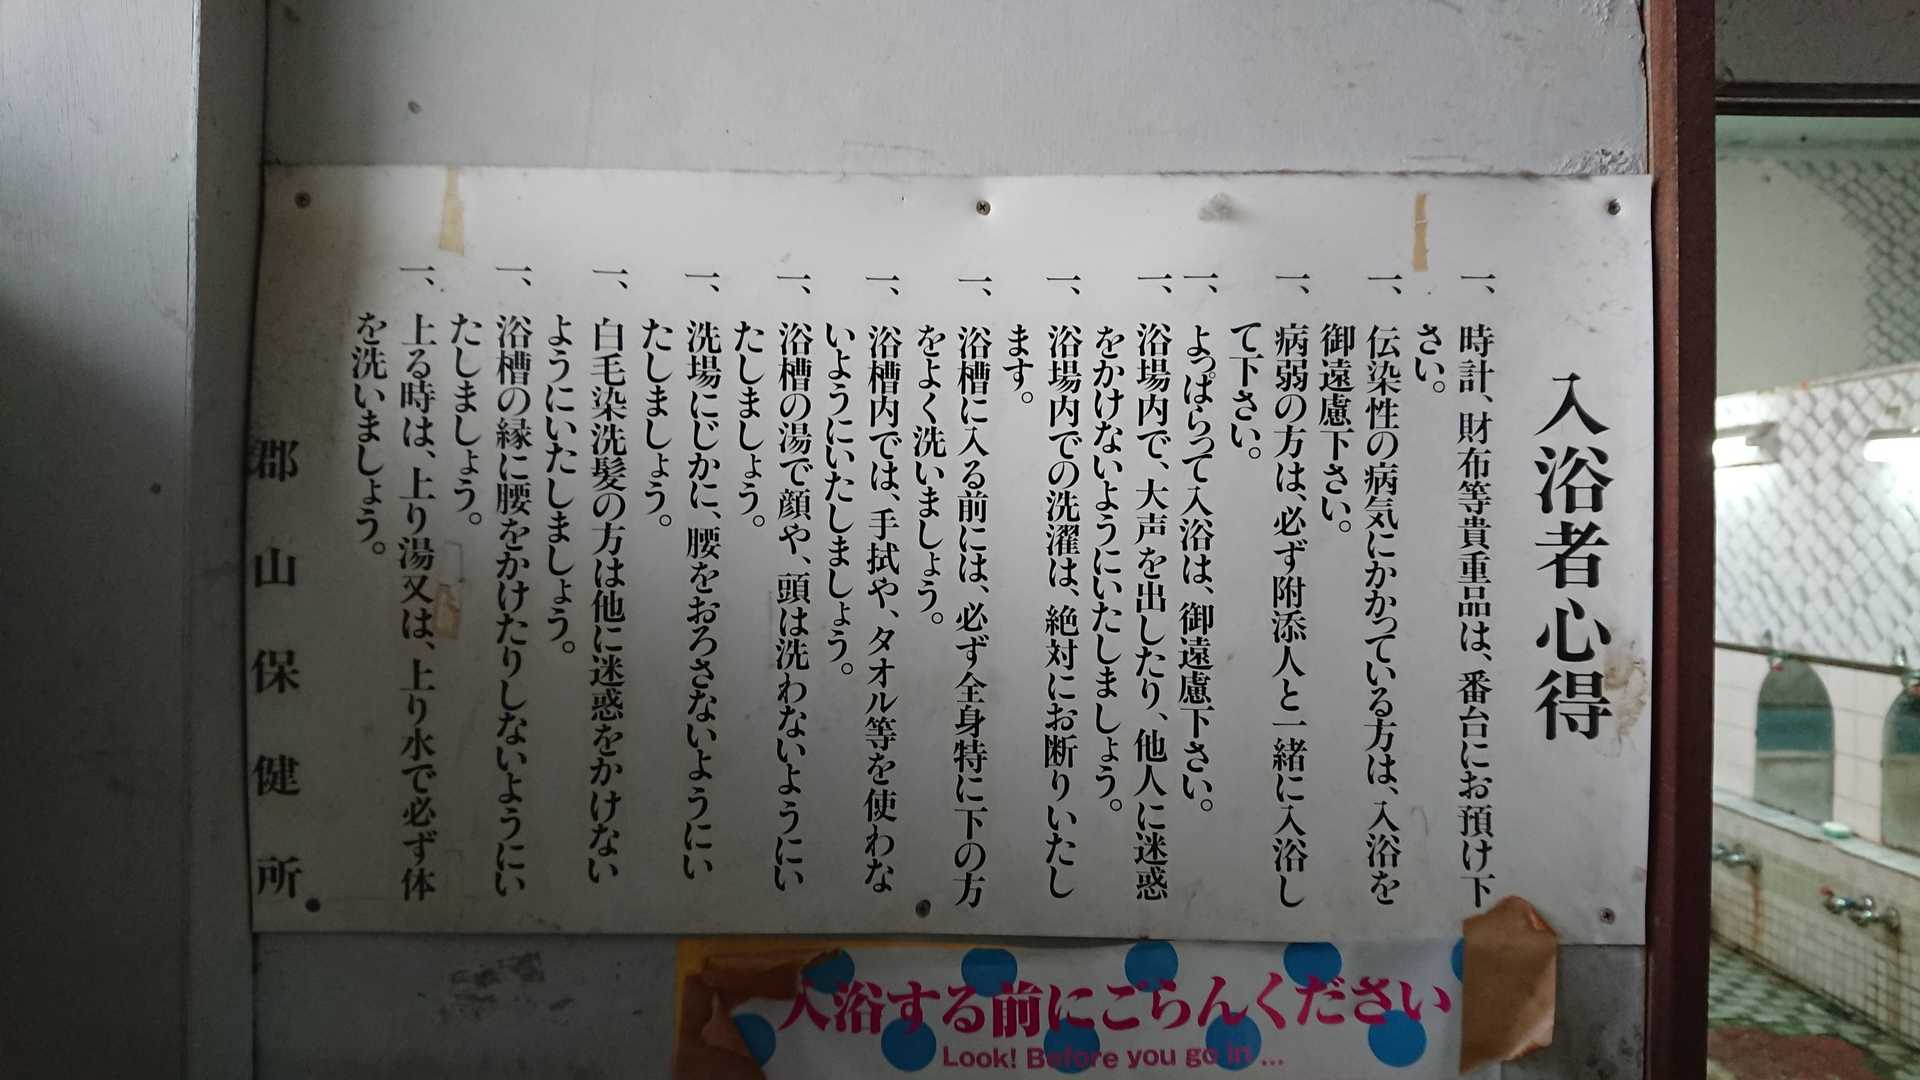 入浴者心得
一、時計、財布等貴重品は、番台にお預け下
さい。
一、伝染性の病気にかかっている方は、入浴を
御遠慮下さい。
一、病弱の方は、必ず附添人と一緒に入浴し
て下さい。
一、よっぱらって入浴は、御遠慮下さい。
一、浴場内で、大声を出したり、他人に迷惑
をかけないようにいたしましょう。
一、浴場内での洗濯は、絶対にお断りいたし
ます。
一、浴槽に入る前には、必ず全身特に下の方
をよく洗いましょう。
一、浴槽内では、手拭や、タオル等を使わな
いようにいたしましょう。
一、浴槽の湯で顔や、頭は洗わないようにい
たしましょう。
一、洗場にじかに、腰をおろさないようにい
たしましょう。
一、白毛染洗髪の方は他に迷惑をかけない
ようにいたしましょう。
一、浴槽の縁に腰をかけたりしないようにい
たしましょう。
一、上る時は、上り湯又は、上り水で必ず体
を洗いましょう。
郡山保健所
入浴する前にごらんください
Look! Before you go in ...